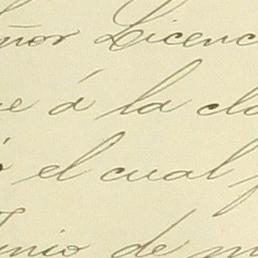 eñor Licenc
ue á la cla
ó el cual f
Junio de m